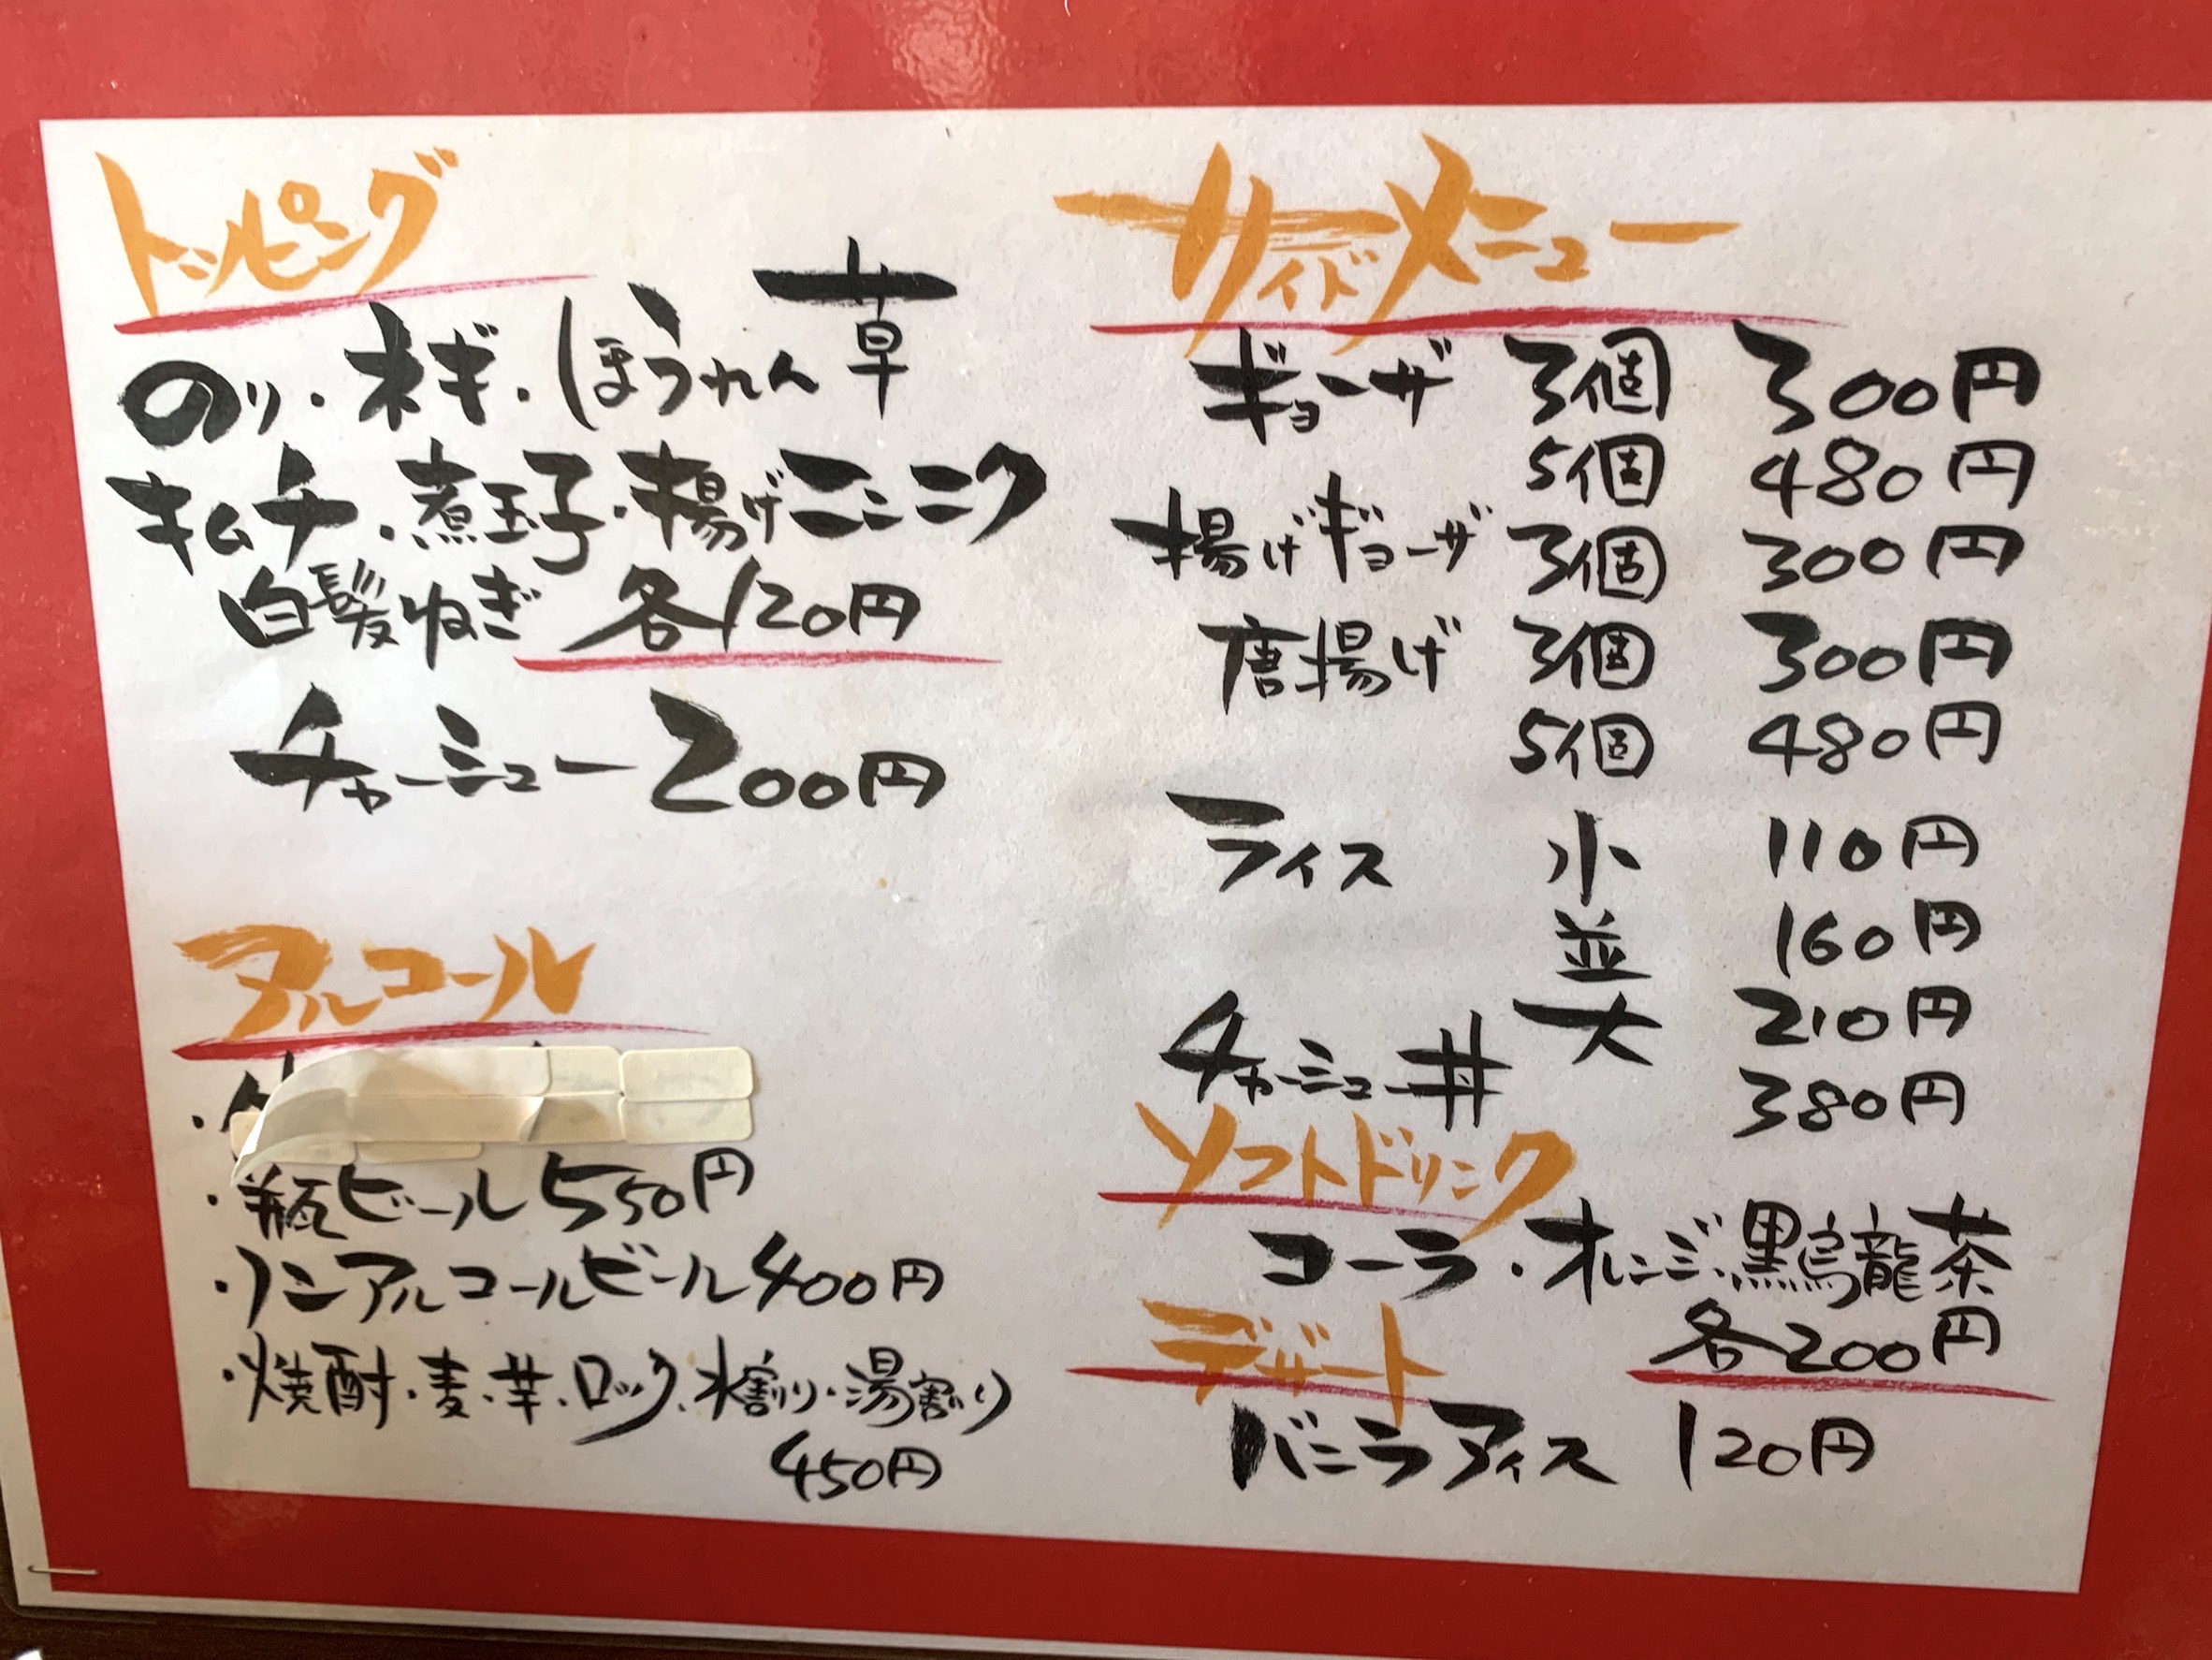 トッピング
のり・ネギ・ほうれん草
キムチ・煮玉子・揚げニンニク
白髪ねぎ 各120円
チャーシュー200円
アルコール
・瓶ビール550円
・ノンアルコールビール400円
・焼酎・麦・芋・ロック・水割り・湯割り
450円
サイドメニュー
ギョーザ 3個 300円
5個 480円
揚げギョーザ 3個 300円
唐揚げ 3個 300円
5個 480円
ライス 小 110円
並 160円
大 210円
チャーシュー丼 380円
ソフトドリンク
コーラ・オレンジ・黒烏龍茶
各200円
デザート
バニラアイス 120円